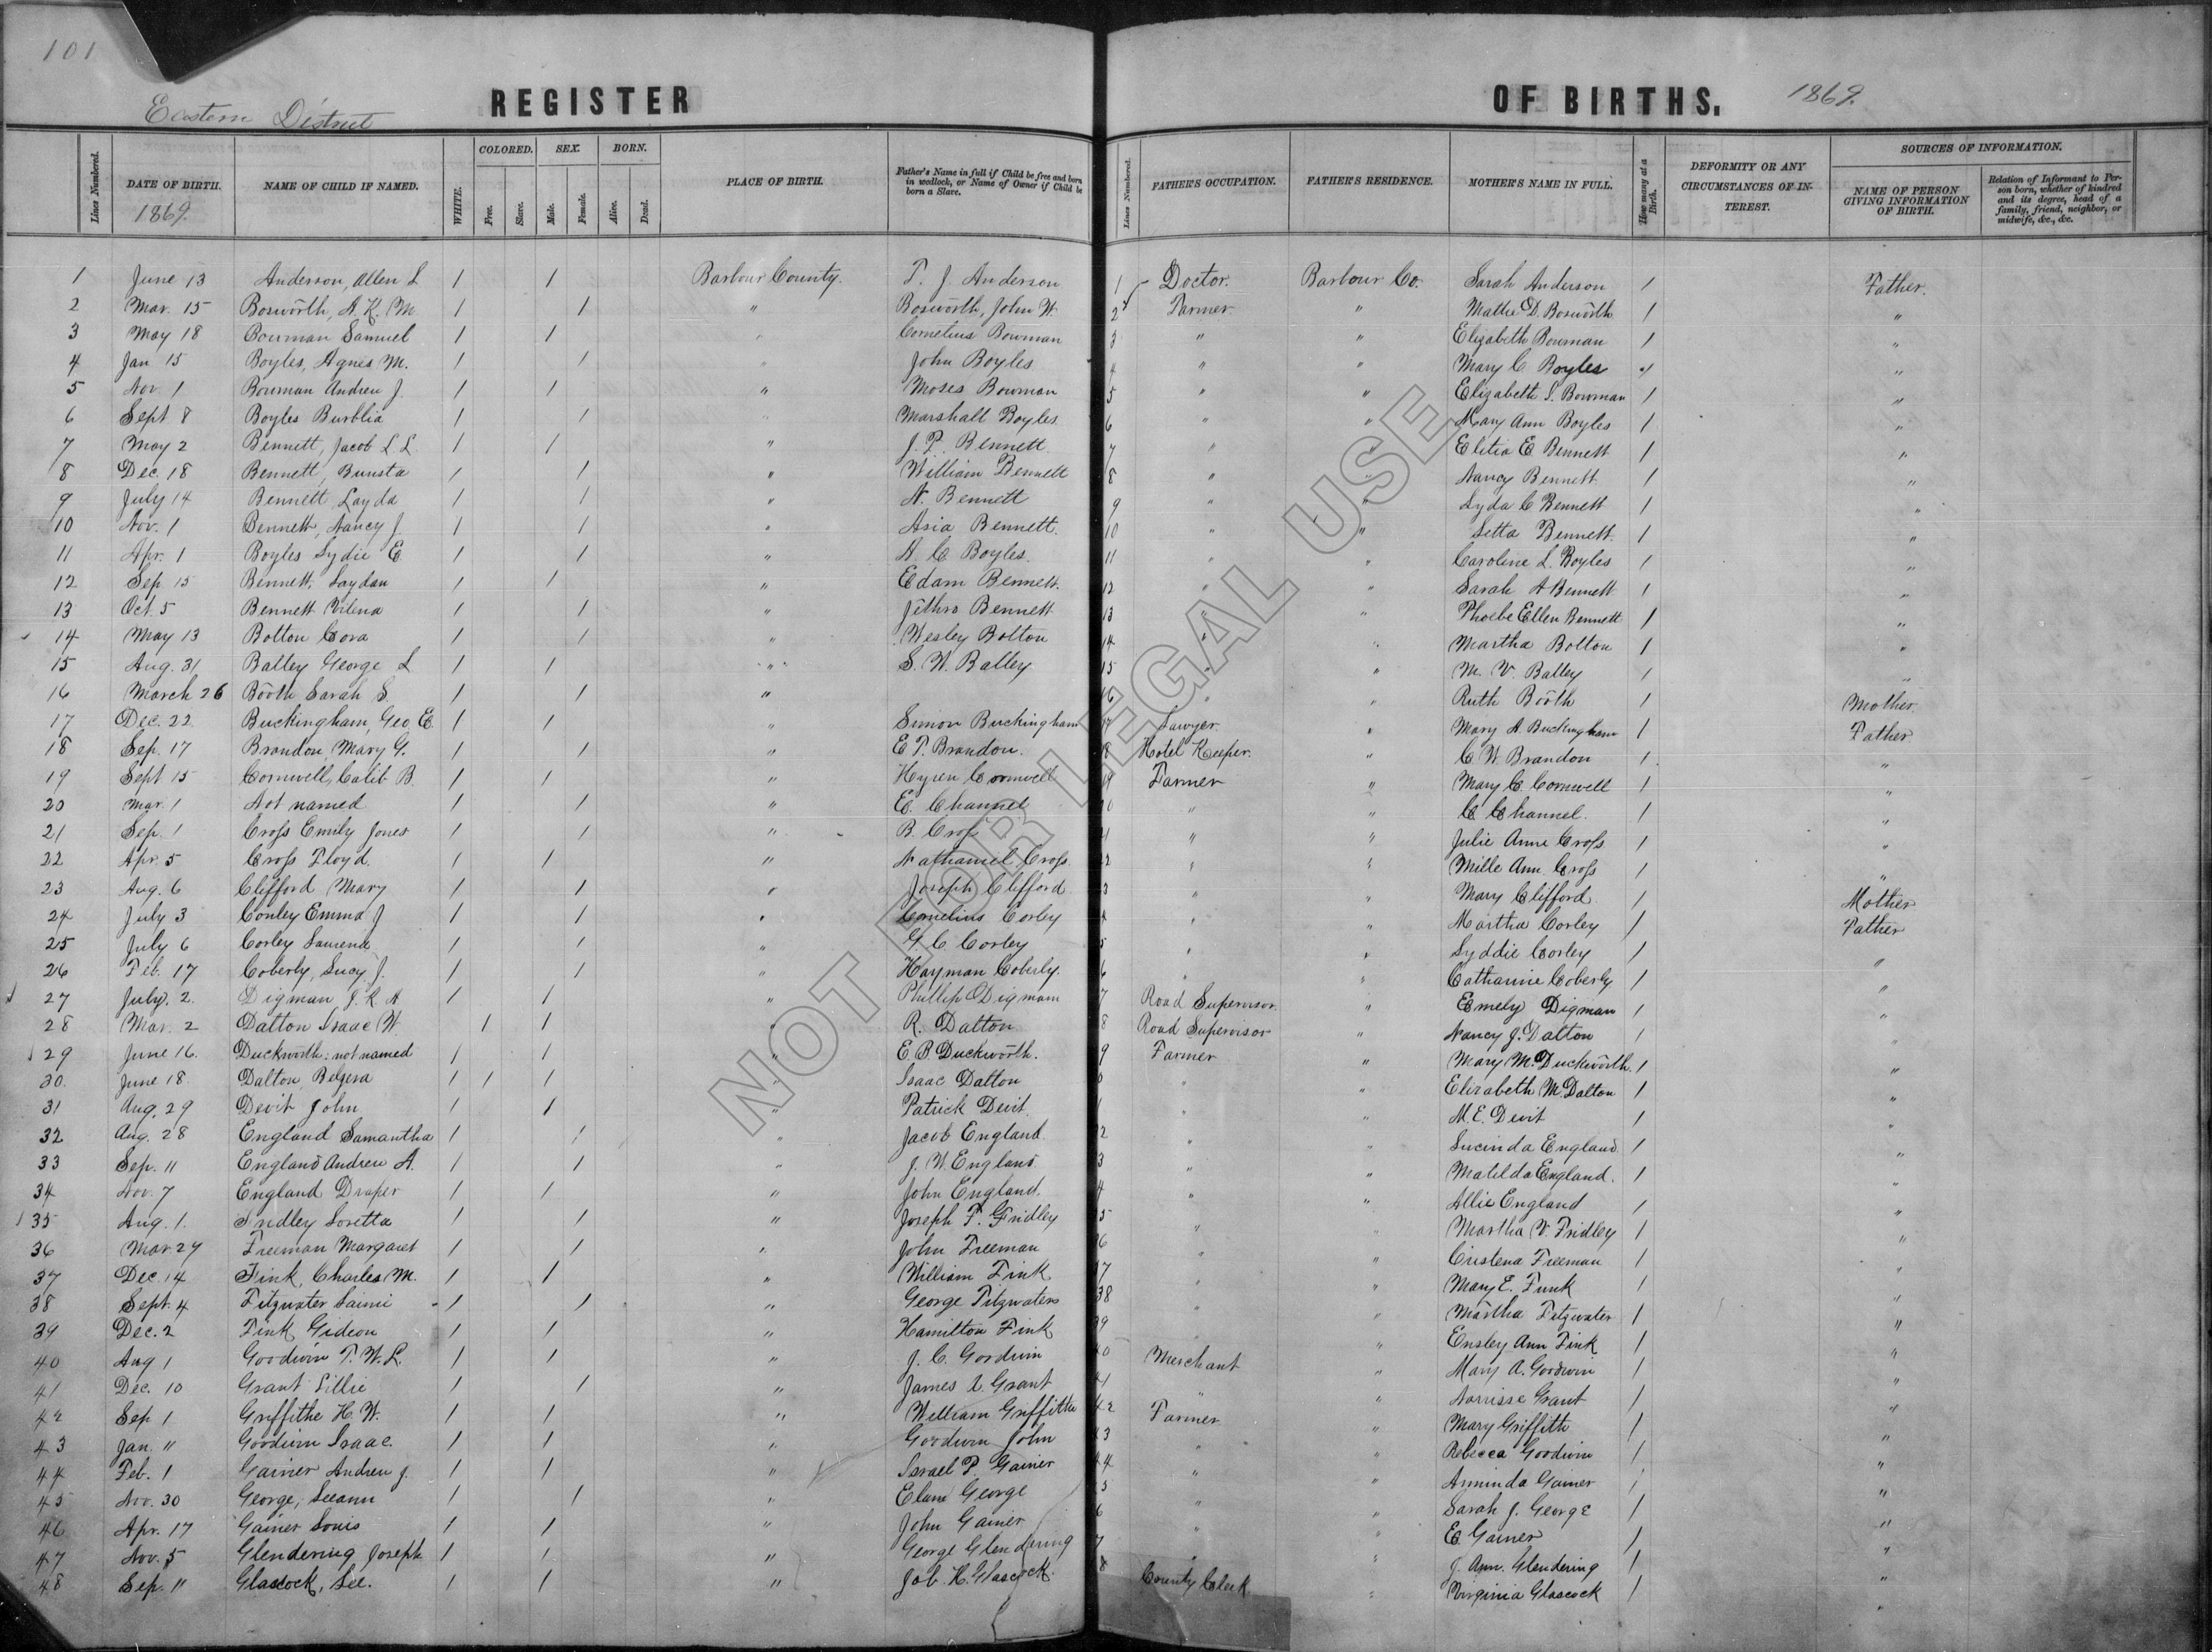 101
Eastern District REGISTER OF BIRTHS. 1869.
Lines Numbered. DATE OF BIRTH. 1869. NAME OF CHILD IF NAMED. WHITE. COLORED. Free. Slave. SEX. Male. Female. BORN. Alive. Dead. PLACE OF BIRTH. Father's Name in full if Child be free and born in wedlock, or Name of Owner if Child be born a Slave. Lines Numbered. FATHER'S OCCUPATION. FATHER'S RESIDENCE. MOTHER'S NAME IN FULL. How many at a Birth. DEFORMITY OR ANY CIRCUMSTANCES OF INTEREST. SOURCES OF INFORMATION. NAME OF PERSON GIVING INFORMATION OF BIRTH. Relation of Informant to Person born, whether of kindred and its degree, head of a family, friend, neighbor, or midwife, &c., &c.
1 June 13 Anderson, Allen L 1 1 Barbour County. T. J. Anderson 1 Doctor. Barbour Co. Sarah Anderson 1 Father.
2 Mar. 15 Bosworth, A. K. M. 1 1 " Bosworth, John W. 2 Farmer " Mattie D. Bosworth 1 "
3 May 18 Bowman Samuel 1 1 " Cornelius Bowman 3 " " Elizabeth Bowman 1 "
4 Jan 15 Boyles, Agnes M. 1 1 " John Boyles 4 " " Mary C Boyles 1 "
5 Nov. 1 Bowman Andrew J. 1 1 " Moses Bowman 5 " " Elizabeth S. Bowman 1 "
6 Sept 8 Boyles Burblia 1 1 " Marshall Boyles 6 " " Mary Ann Boyles 1 "
7 May 2 Bennett, Jacob L L. 1 1 " J. P. Bennett 7 " " Elitia E Bennett 1 "
8 Dec. 18 Bennett, Bunsta 1 1 " William Bennett 8 " " Nancy Bennett 1 "
9 July 14 Bennett Layda 1 1 " N. Bennett 9 " " Lyda C Bennett 1 "
10 Nov. 1 Bennett, Nancy J. 1 1 " Asia Bennett. 10 " " Setta Bennett. 1 "
11 Apr. 1 Boyles Lydie E 1 1 " H. C. Boyles. 11 " " Caroline L. Boyles 1 "
12 Sep 15 Bennett, Laydan 1 1 " Edam Bennett. 12 " " Sarah A Bennett 1 "
13 Oct. 5 Bennett Vilena 1 1 " Jethro Bennett 13 " " Phoebe Ellen Bennett 1 "
14 May 13 Bolton Cora 1 1 " Wesley Bolton 14 " " Martha Bolton 1 "
15 Aug. 31 Batley George L 1 1 " S. W. Batley 15 " " M. V. Batley 1 "
16 March 26 Booth Sarah S. 1 1 " 16 " " Ruth Booth 1 Mother.
17 Dec. 22. Buckingham, Geo E. 1 1 " Simon Buckingham 17 Lawyer. " Mary A. Buckingham 1 Father
18 Sep. 17 Brandon Mary G. 1 1 " E T. Brandon. 18 Hotel Keeper. " C. W. Brandon 1 "
19 Sept 15 Cornwell, Calib B. 1 1 " Hyren Cornwell 19 Farmer " Mary C. Cornwell 1 "
20 Mar. 1 Not named 1 1 " E. Channel 20 " " C Channel. 1 "
21 Sep. 1 Cross Emily Jones 1 1 " B. Cross 21 " " Julie Anne Cross 1 "
22 Apr. 5 Cross Floyd. 1 1 " Nathaniel Cross. 22 " " Mille Ann Cross 1 "
23 Aug. 6 Clifford Mary 1 1 " Joseph Clifford. 3 " " Mary Clifford 1 Mother
24 July 3 Conley Emma J 1 1 " Cornelius Corley 4 " " Martha Corley 1 Father
25 July 6 Corley Laurena 1 1 " G. C. Corley 5 " " Lyddie Corley 1 "
26 Feb. 17 Coberly, Lucy J. 1 1 " Hayman Coberly. 6 " " Catharine Coberly 1 "
27 July. 2. Digman, J. R A 1 1 " Phillip Digman 7 Road Supervisor. " Emely Digman 1 "
28 Mar. 2 Dalton Isaac W. 1 1 " R. Dalton 8 Road Supervisor " Nancy J. Dalton 1 "
29 June 16. Duckworth: not named 1 1 " E. B. Duckworth. 9 Farmer " Mary M. Duckworth. 1 "
30. June 18. Dalton, Belzera 1 1 1 " Isaac Dalton 0 " " Elizabeth M. Dalton 1 "
31 Aug. 29 Devit John 1 1 " Patrick Devit. 1 " " M. E. Devit 1 "
32 Aug. 28 England Samantha 1 1 " Jacob England 2 " " Lucinda England 1 "
33 Sep. 11 England Andrew A. 1 1 " J. W. England 3 " " Matilda England. 1 "
34 Nov. 7 England Draper 1 1 " John England. 4 " " Allie England 1 "
35 Aug. 1. Fridley Loretta 1 1 " Joseph F. Fridley 5 " " Martha V. Fridley 1 "
36 Mar 27 Freeman Margaret 1 1 " John Freeman 36 " " Cristena Freeman 1 "
37 Dec. 14 Fink, Charles M. 1 1 " William Fink 37 " " Mary E. Funk 1 "
38 Sept. 4 Fitzwater 1 1 " George Fitzwaters 38 " " Martha Fitzwater 1 "
39 Dec. 2 Fink Gideon 1 1 " Hamilton Fink 39 " " Ensley Ann Fink 1 "
40 Aug 1 Goodwin T. W. L. 1 1 " J. C. Goodwin 40 Merchant " Mary A. Goodwin 1 "
41 Dec. 10 Grant Lillie 1 1 " James L. Grant 41 " " Norrisse Grant 1 "
42 Sep 1 Griffithe H. W. 1 1 " William Griffith 42 Farmer " Mary Griffith 1 "
43 Jan. 11 Goodwin Isaac. 1 1 " Goodwin John 43 " " Rebecca Goodwin 1 "
44 Feb. 1 Gainer Andrew J. 1 1 " Israel P. Gainer 44 " " Arminda Gainer 1 "
45 Nov. 30 George, Leeann 1 1 " Elam George 5 " " Sarah J. George 1 "
46 Apr. 17 Gainer Louis 1 1 " John Gainer 6 " " E. Gainer 1 "
47 Nov. 5 Glendering Joseph 1 1 " George Glendering 7 " " J. Ann. Glendering 1 "
48 Sep. 11 Glascock, Lee. 1 1 " Job. H. Glascock. 8 County Clerk " Virginia Glascock 1 "
NOT FOR LEGAL USE